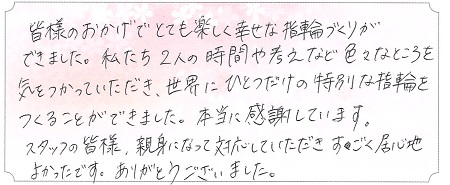 皆様のおかげでとても楽しく幸せな指輪づくりが
できました。私たち2人の時間や考えなど色々なところを
気をつかっていただき、世界にひとつだけの特別な指輪を
つくることができました。本当に感謝しています。
スタッフの皆様、親身になって対応していただきすごく居心地
よかったです。ありがとうございました。